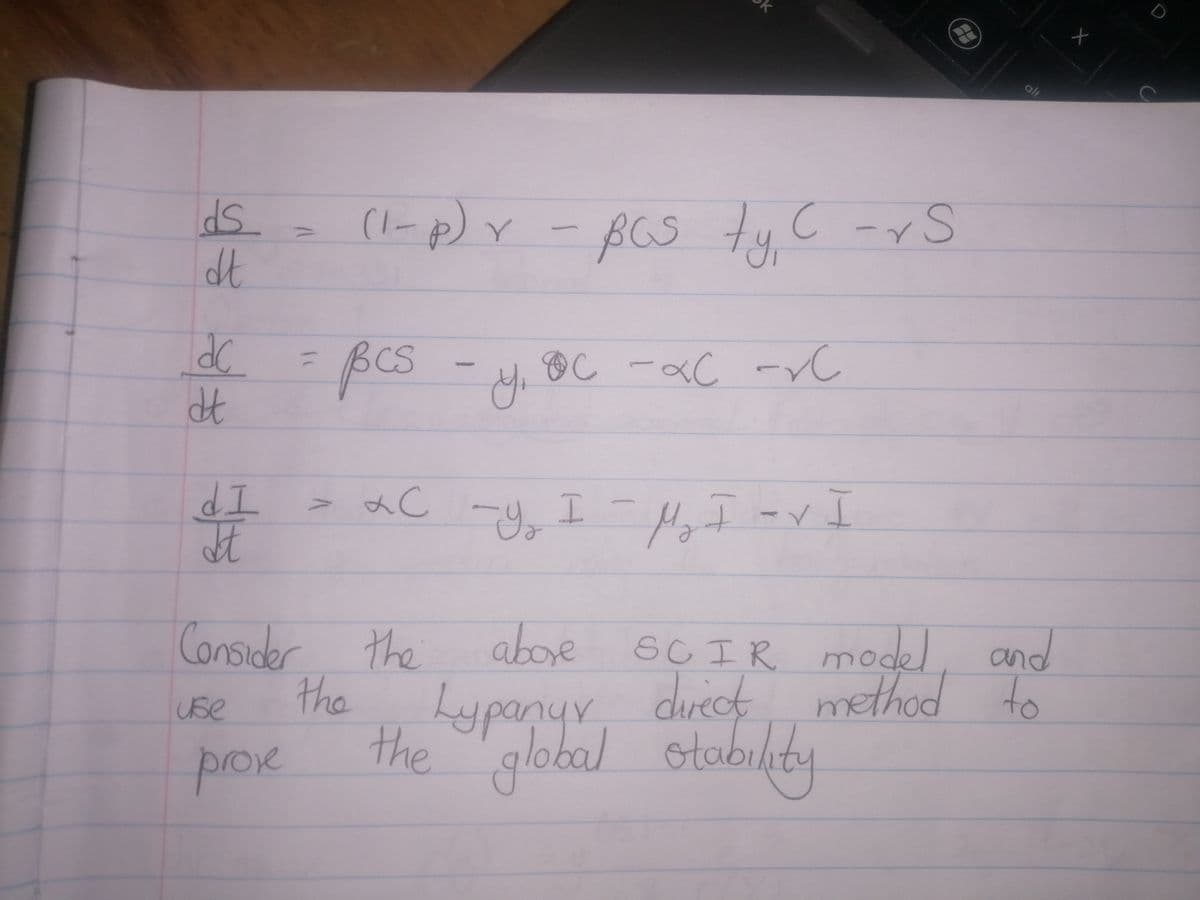 dS/dt = (1-p) r - βCS + y₁C - rS
dC/dt = βCS - y₁ θC - αC - rC
dI/dt = αC - y₂ I - μ₂ I - r I
Consider the above SCIR model, and
use the Lypanyv direct method to
prove the global stability